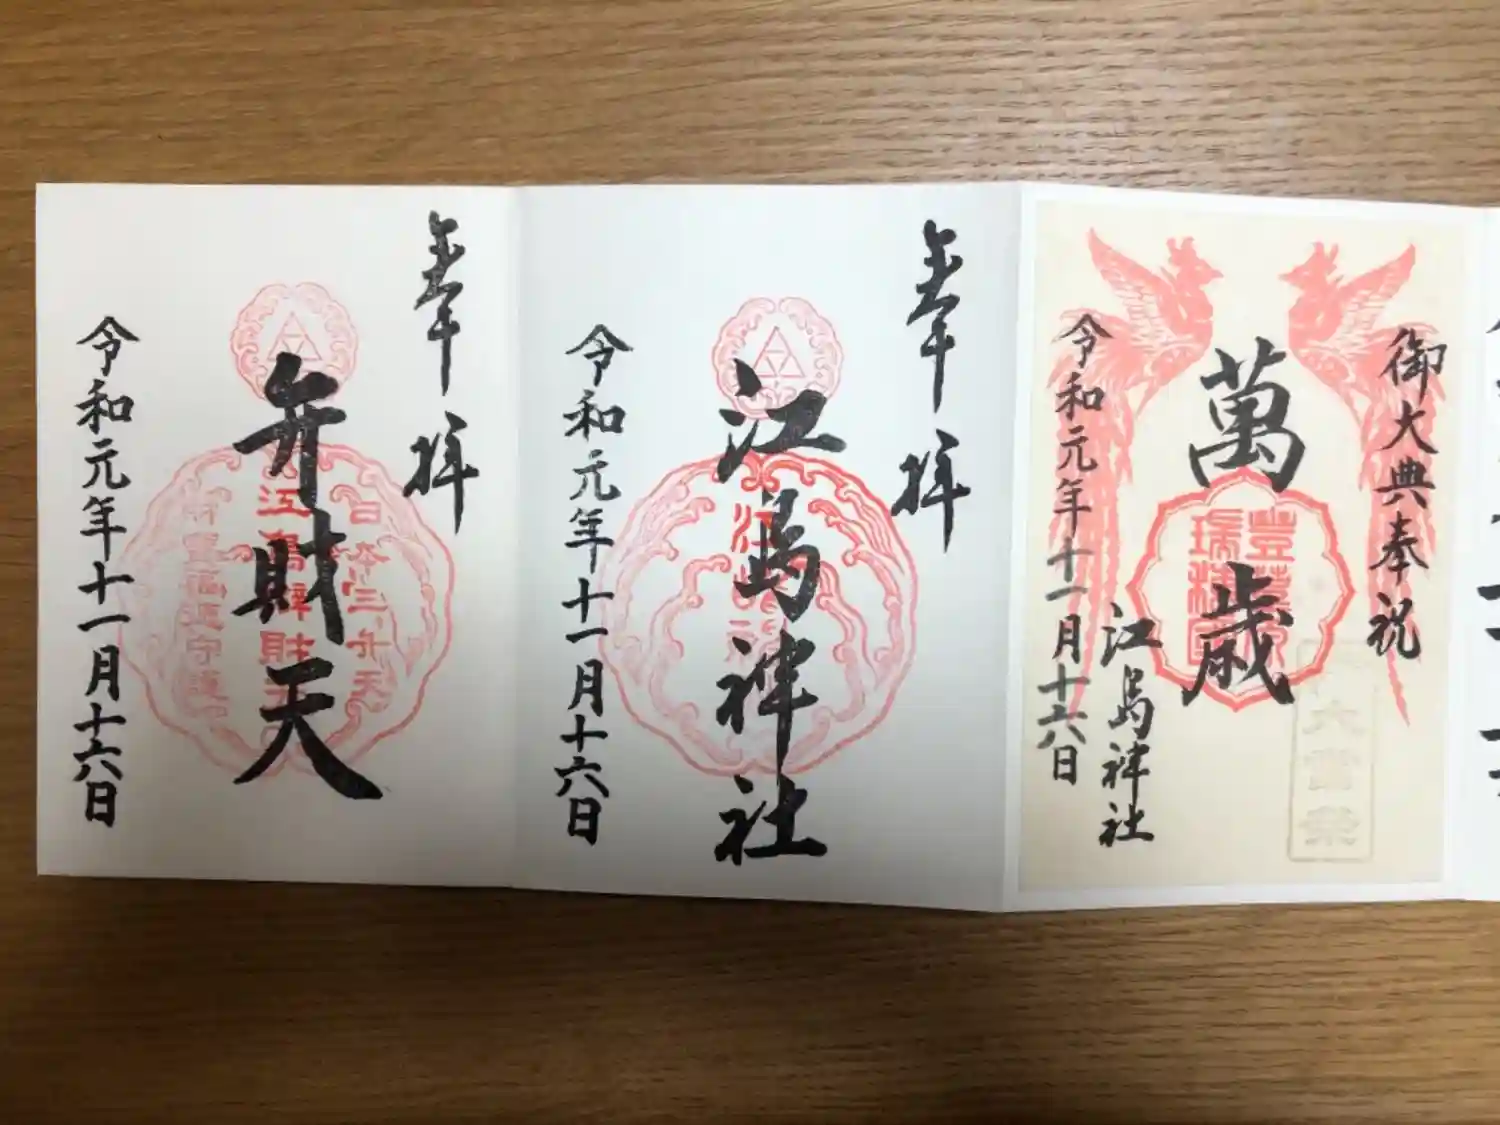 御大典奉祝
萬歳
豊葦原
瑞穂国
大嘗祭
江島神社
令和元年十一月十六日
奉拝
江島神社
令和元年十一月十六日
奉拝
弁財天
日本三弁天
江島辨財天
財宝福徳守護
令和元年十一月十六日